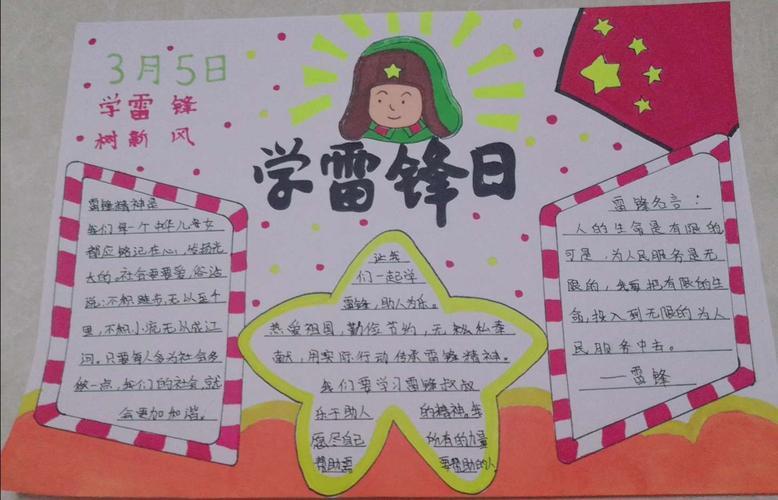 3月5日
学雷锋
树新风
学雷锋日
雷锋精神是
我们每一个中华儿女
都应铭记在心,发扬光
大的。社会要爱,俗话
说:不积跬步,无以至千
里,不积小流无以成江
河。只要每人多为社会多
做一点,我们的社会就
会更加和谐。
让我
们一起学
雷锋,助人为乐。
热爱祖国,勤俭节约,无私奉
献,用实际行动传承雷锋精神。
我们要学习雷锋叔叔
乐于助人 的精神,
愿尽自己 所有的力量
帮助 要帮助的人
雷锋名言:
人的生命是有限的
可是,为人民服务是无
限的,我要把有限的生
命,投入到无限的为人
民服务中去。
——雷锋